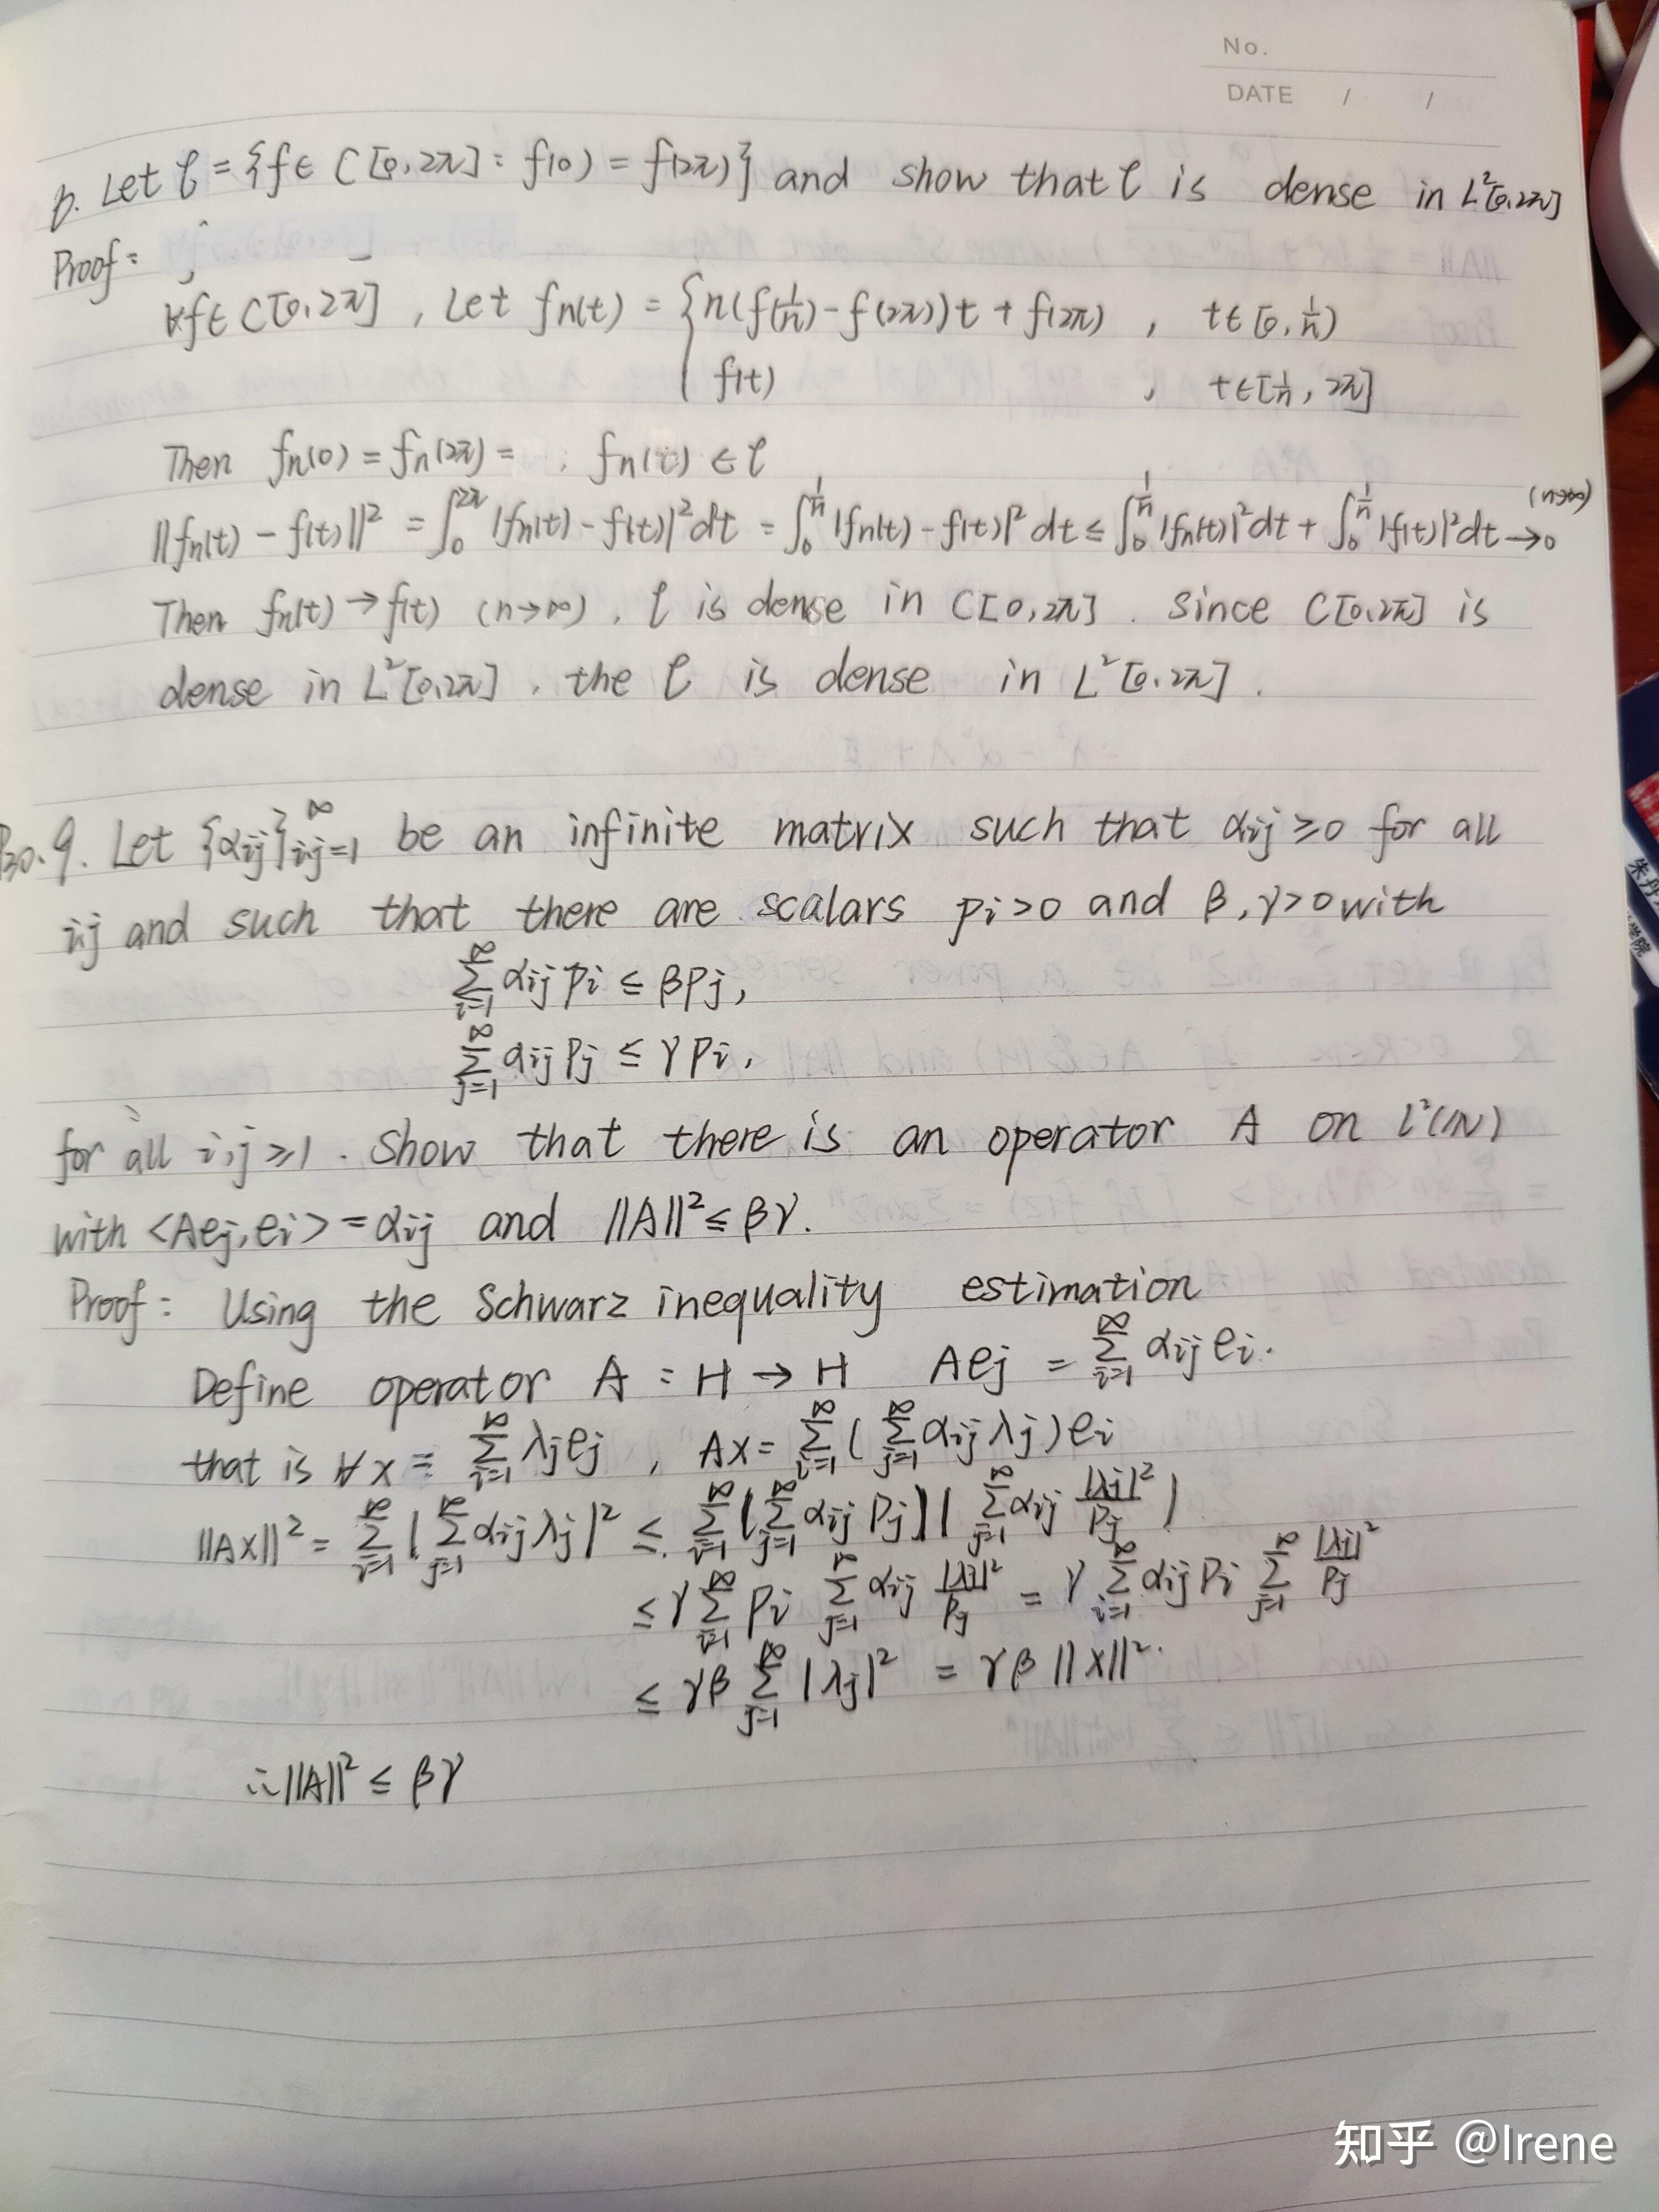 No.
DATE / /
6. Let ℓ = {f ∈ C[0, 2π] : f(0) = f(2π)} and show that ℓ is dense in L²[0, 2π]
Proof:
∀f ∈ C[0, 2π], Let fn(t) = { n(f(1/n) - f(2π))t + f(2π), t ∈ [0, 1/n)
f(t), t ∈ [1/n, 2π]
Then fn(0) = fn(2π) = , fn(t) ∈ ℓ
||fn(t) - f(t)||² = ∫₀^{2π} |fn(t) - f(t)|² dt = ∫₀^{1/n} |fn(t) - f(t)|² dt ≤ ∫₀^{1/n} |fn(t)|² dt + ∫₀^{1/n} |f(t)|² dt → 0 (n→∞)
Then fn(t) → f(t) (n→∞), ℓ is dense in C[0, 2π]. Since C[0, 2π] is
dense in L²[0, 2π], the ℓ is dense in L²[0, 2π].
P30. 9. Let {αij}_{i,j=1}^∞ be an infinite matrix such that αij ≥ 0 for all
i,j and such that there are scalars pi > 0 and β, γ > 0 with
∑_{i=1}^∞ αij pi ≤ βpj,
∑_{j=1}^∞ αij pj ≤ γpi,
for all i,j ≥ 1. Show that there is an operator A on l²(N)
with <Aej, ei> = αij and ||A||² ≤ βγ.
Proof: Using the Schwarz inequality estimation
Define operator A : H → H Aej = ∑_{i=1}^∞ αij ei.
that is ∀x = ∑_{i=1}^∞ λj ej, Ax = ∑_{i=1}^∞ (∑_{j=1}^∞ αij λj) ei
||Ax||² = ∑_{i=1}^∞ |∑_{j=1}^∞ αij λj|² ≤ ∑_{i=1}^∞ |∑_{j=1}^∞ αij pj| |∑_{j=1}^∞ αij |λj|²/pj|
≤ γ ∑_{i=1}^∞ pi ∑_{j=1}^∞ αij |λj|²/pj = γ ∑_{i=1}^∞ αij pi ∑_{j=1}^∞ |λj|²/pj
≤ γβ ∑_{j=1}^∞ |λj|² = γβ ||x||².
∴ ||A||² ≤ βγ
知乎 @Irene